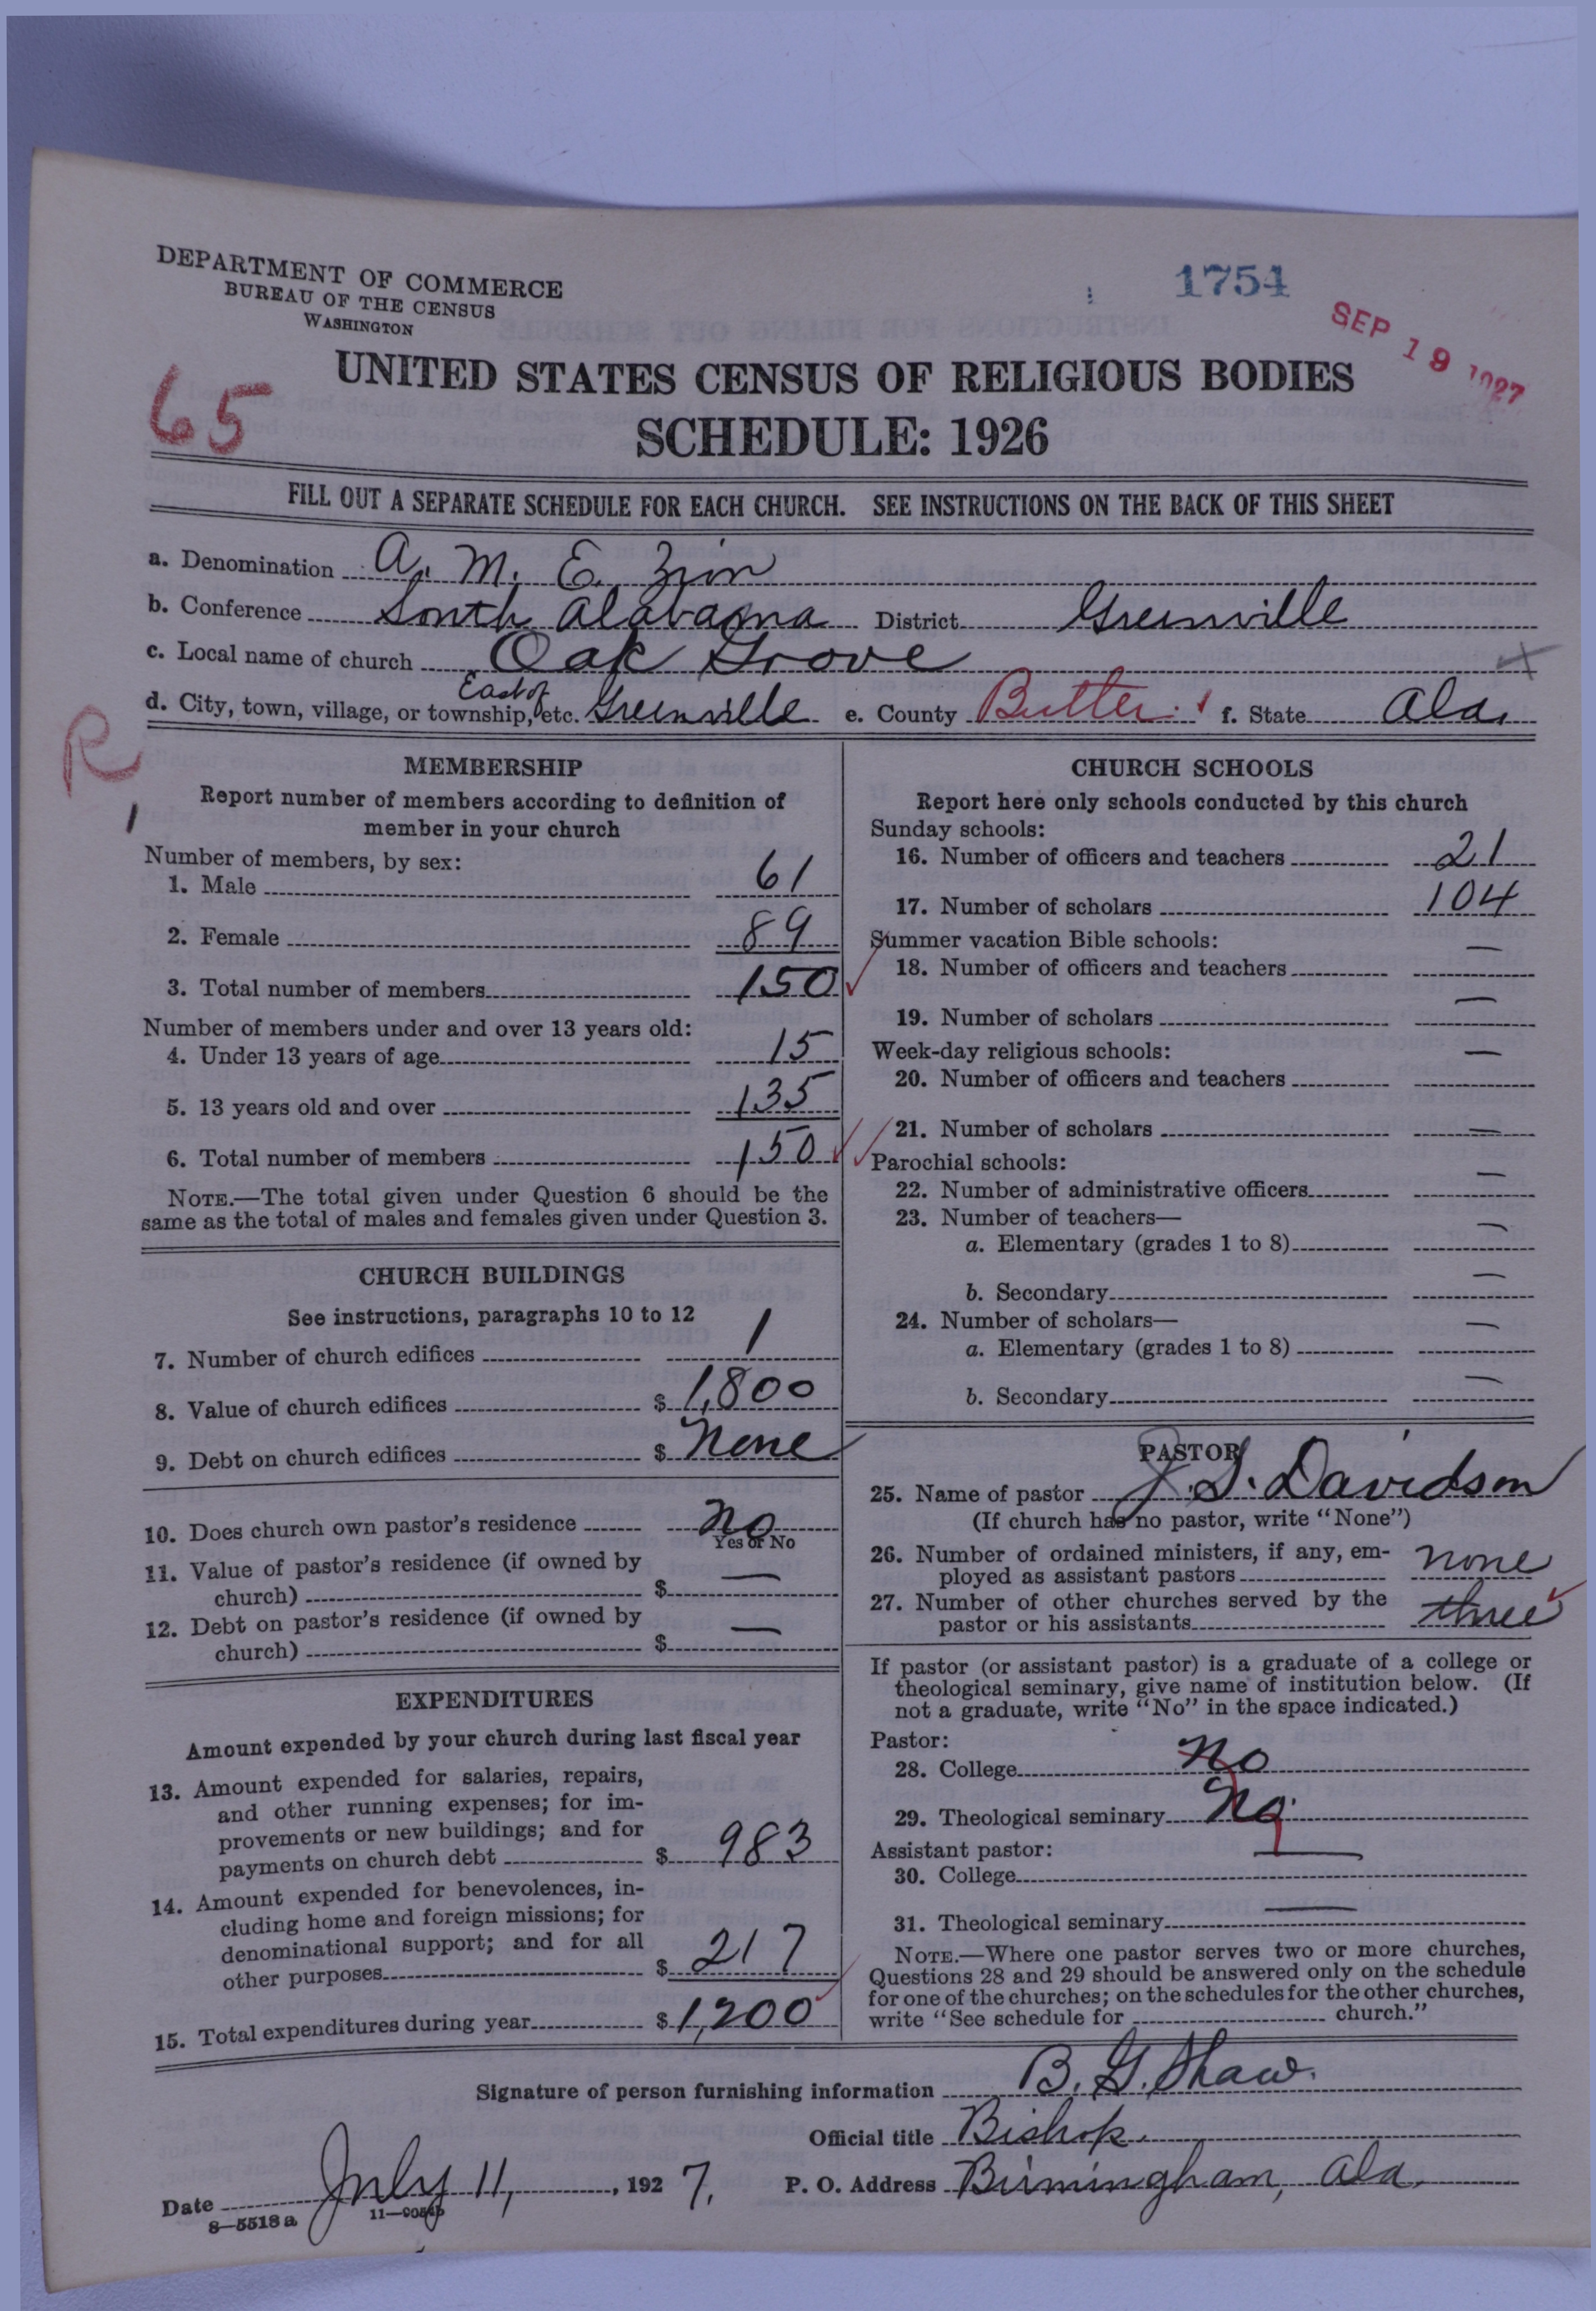 DEPARTMENT OF COMMERCE
BUREAU OF THE CENSUS
WASHINGTON
1754
SEP 19 1927
65
UNITED STATES CENSUS OF RELIGIOUS BODIES
SCHEDULE: 1926
FILL OUT A SEPARATE SCHEDULE FOR EACH CHURCH. SEE INSTRUCTIONS ON THE BACK OF THIS SHEET
a. Denomination A. M. E. Zion
b. Conference South Alabama District Greenville
c. Local name of church Oak Grove
d. City, town, village, or township, etc. East of Greenville e. County Butler f. State Ala.
R
MEMBERSHIP
Report number of members according to definition of
member in your church
Number of members, by sex:
1. Male 61
2. Female 89
3. Total number of members 150
Number of members under and over 13 years old:
4. Under 13 years of age 15
5. 13 years old and over 135
6. Total number of members 150
NOTE.—The total given under Question 6 should be the
same as the total of males and females given under Question 3.
CHURCH BUILDINGS
See instructions, paragraphs 10 to 12
7. Number of church edifices 1
8. Value of church edifices $ 1,800
9. Debt on church edifices $ None
10. Does church own pastor's residence No
Yes or No
11. Value of pastor's residence (if owned by
church) $ —
12. Debt on pastor's residence (if owned by
church) $ —
EXPENDITURES
Amount expended by your church during last fiscal year
13. Amount expended for salaries, repairs,
and other running expenses; for im-
provements or new buildings; and for
payments on church debt $ 983
14. Amount expended for benevolences, in-
cluding home and foreign missions; for
denominational support; and for all
other purposes $ 217
15. Total expenditures during year $ 1,200
CHURCH SCHOOLS
Report here only schools conducted by this church
Sunday schools:
16. Number of officers and teachers 21
17. Number of scholars 104
Summer vacation Bible schools:
18. Number of officers and teachers —
19. Number of scholars —
Week-day religious schools:
20. Number of officers and teachers —
21. Number of scholars —
Parochial schools:
22. Number of administrative officers —
23. Number of teachers—
a. Elementary (grades 1 to 8) —
b. Secondary —
24. Number of scholars—
a. Elementary (grades 1 to 8) —
b. Secondary —
PASTOR
25. Name of pastor J. S. Davidson
(If church has no pastor, write "None")
26. Number of ordained ministers, if any, em-
ployed as assistant pastors none
27. Number of other churches served by the
pastor or his assistants three
If pastor (or assistant pastor) is a graduate of a college or
theological seminary, give name of institution below. (If
not a graduate, write "No" in the space indicated.)
Pastor:
28. College No
29. Theological seminary No.
Assistant pastor:
30. College —
31. Theological seminary —
NOTE.—Where one pastor serves two or more churches,
Questions 28 and 29 should be answered only on the schedule
for one of the churches; on the schedules for the other churches,
write "See schedule for church."
Signature of person furnishing information B. G. Shaw.
Official title Bishop.
Date July 11, 1927. P. O. Address Birmingham, Ala.
8—5518a 11—9054b